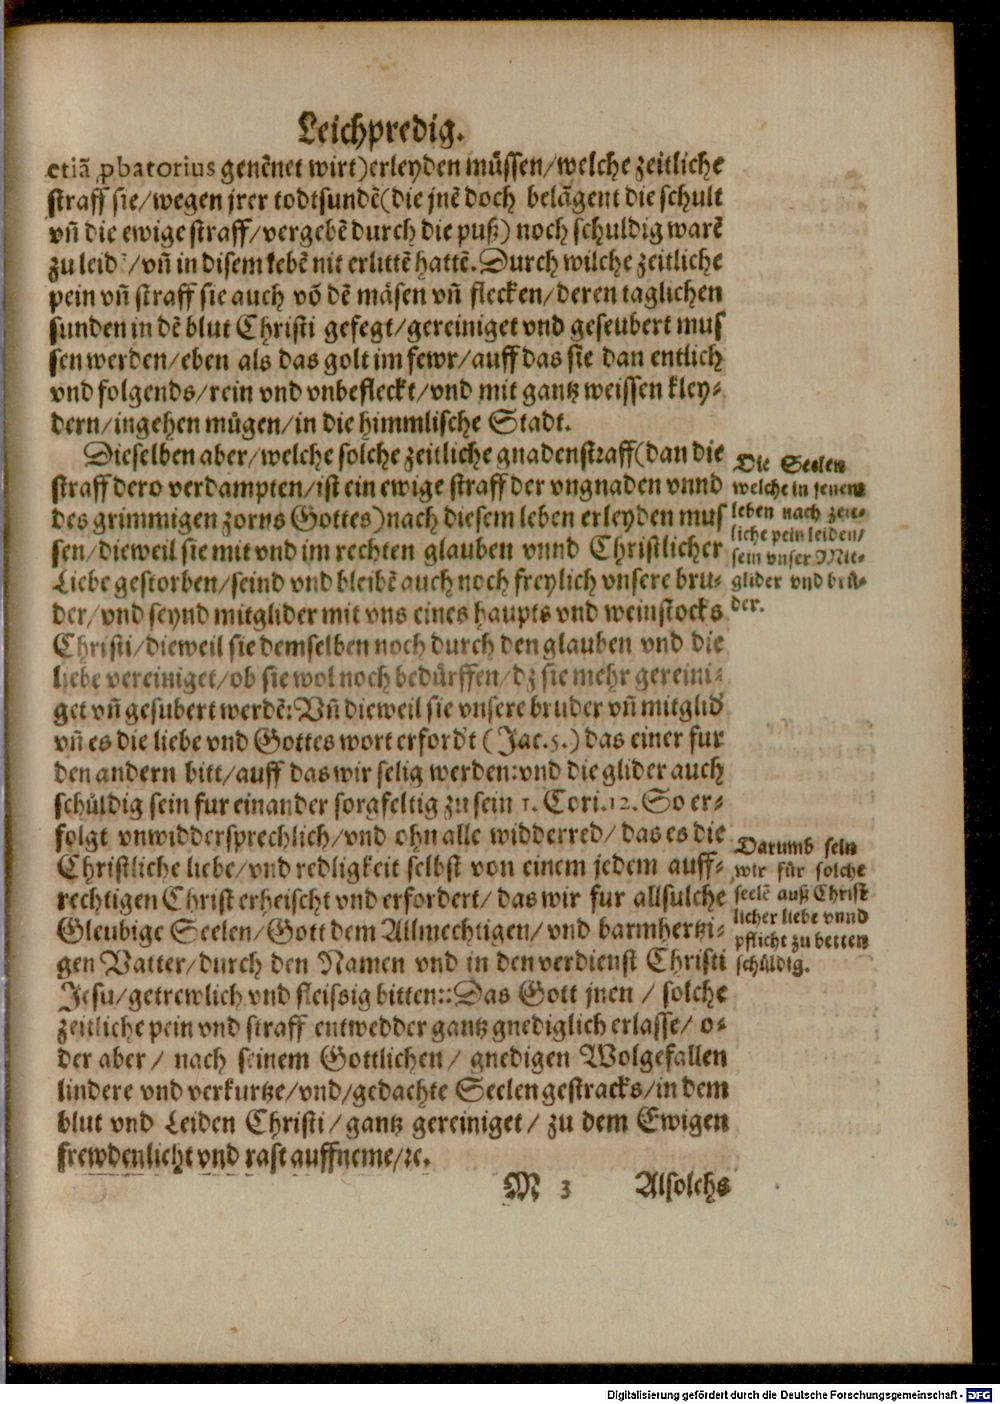 Leichpredig.
etiã ꝓbatorius genēnet wirt) erleyden müssen/welche zeitliche
straff sie/wegen jrer todtsundē (die jnē doch belāgent die schult
vñ die ewige straff/vergebē durch die puß) noch schuldig warē
zu leidē/vñ in disem lebē nit erlittē hattē. Durch wilche zeitliche
pein vñ straff sie auch võ dē mäsen vñ flecken/deren taglichen
sunden in dē blut Christi gefegt/gereiniget vnd geseubert mus
sen werden/eben als das golt im fewr/auff das sie dan entlich
vnd folgends/rein vnd vnbefleckt/vnd mit gantz weissen kley⸗
dern/ingehen mügen/in die himmlische Stadt.
Dieselben aber/welche solche zeitliche gnadenstraff (dan die
straff dero verdampten/ist ein ewige straff der vngnaden vnnd
des grimmigen zorns Gottes) nach diesem leben erleyden mus
sen/dieweil sie mit vnd im rechten glauben vnnd Christlicher
Liebe gestorben/seind vnd bleibē auch noch freylich vnsere bru⸗
der/vnd seynd mitglider mit vns eines haupts vnd weinstocks
Christi/dieweil sie demselben noch durch den glauben vnd die
liebe vereiniget/ob sie wol noch bedürffen/dz sie mehr gereini⸗
get vñ gesubert werdē: Vñ dieweil sie vnsere bruder vñ mitglid'
vñ es die liebe vnd Gottes wort erford't (Jac. 5.) das einer fur
den andern bitt/auff das wir selig werden: vnd die glider auch
schüldig sein fur einander sorgfeltig zu sein 1. Cori. 12. So er⸗
folgt vnwiddersprechlich/vnd ohn alle widderred/das es die
Christliche liebe/vnd redligkeit selbst von einem jedem auff⸗
rechtigen Christ erheischt vnd erfordert/das wir fur allsulche
Gleubige Seelen/Gott dem Allmechtigen/vnd barmhertzi⸗
gen Vatter/durch den Namen vnd in den verdienst Christi
Jesu/getrewlich vnd fleissig bitten:: Das Gott jnen / solche
zeitliche pein vnd straff entwedder gantz gnediglich erlasse/ o⸗
der aber / nach seinem Gottlichen / gnedigen Wolgefallen
lindere vnd verkurtze/vnd/gedachte Seelen gestracks/in dem
blut vnd Leiden Christi / gantz gereiniget / zu dem Ewigen
frewdenlicht vnd rast auffneme/ꝛc.
M 3 Alsolchs
Die Seelen
welche in jenem
leben nach zeit⸗
liche pein leiden/
sein vnser Mit⸗
glider vnd brü⸗
der.
Darumb sein
wir für solche
seelē auß Christ
licher liebe vnnd
pflicht zu betten
schüldig.
Digitalisierung gefördert durch die Deutsche Forschungsgemeinschaft - DFG